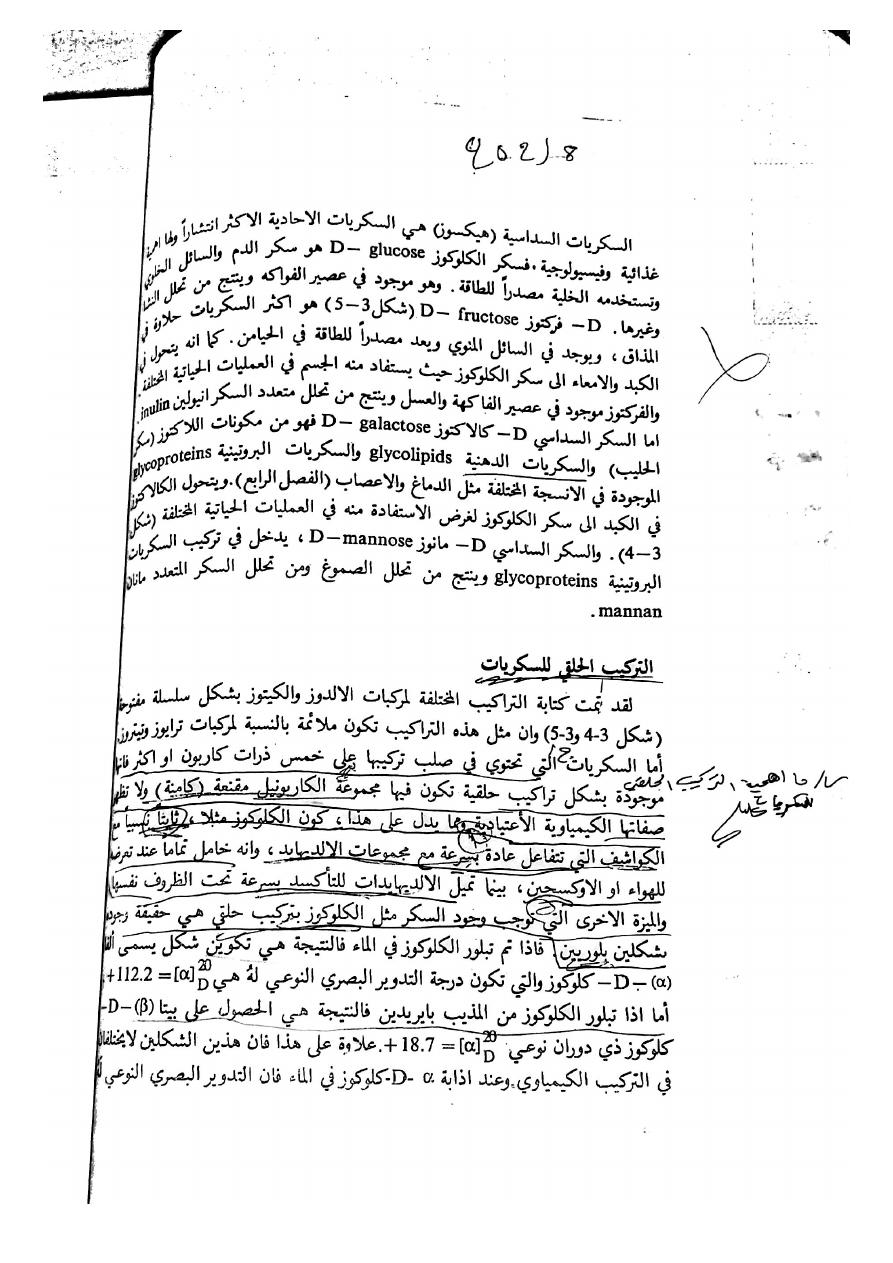 السكريات السداسية (هيكسوز) هي السكريات الاحادية الاكثر انتشاراً ولها اهمية
غذائية وفيسيولوجية. فسكر الكلوكوز D– glucose هو سكر الدم والسائل الخلوي
وتستخدمه الخلية مصدراً للطاقة . وهو موجود في عصير الفواكه وينتج من تحلل النشا
وغيرها. D– فركتوز D– fructose (شكل 3–5) هو اكثر السكريات حلاوة في
المذاق ، ويوجد في السائل المنوي ويعد مصدراً للطاقة في الحيامن. كما انه يتحول في
الكبد والامعاء الى سكر الكلوكوز حيث يستفاد منه الجسم في العمليات الحياتية المختلفة.
والفركتوز موجود في عصير الفاكهة والعسل وينتج من تحلل متعدد السكر انيولين inulin.
اما السكر السداسي D– كالاكتوز D– galactose فهو من مكونات اللاكتوز (سكر
الحليب) والسكريات الدهنية glycolipids والسكريات البروتينية glycoproteins
الموجودة في الانسجة المختلفة مثل الدماغ والاعصاب (الفصل الرابع). ويتحول الكالاكتوز
في الكبد الى سكر الكلوكوز لغرض الاستفادة منه في العمليات الحياتية المختلفة (شكل
3–4). والسكر السداسي D– مانوز D–mannose ، يدخل في تركيب السكريات
البروتينية glycoproteins وينتج من تحلل الصموغ ومن تحلل السكر المتعدد مانان
mannan .
التركيب الحلقي للسكريات
لقد تمت كتابة التراكيب المختلفة لمركبات الالدوز والكيتوز بشكل سلسلة مفتوحة
(شكل 3-4 و3-5) وان مثل هذه التراكيب تكون ملائمة بالنسبة لمركبات ترايوز وتيتروز.
أما السكريات التي تحتوي في صلب تركيبها على خمس ذرات كاربون او اكثر فانها
موجودة بشكل تراكيب حلقية تكون فيها مجموعة الكاربونيل مقنعة (كامنة) ولا تظهر
صفاتها الكيمياوية الأعتيادية ومما يدل على هذا ، كون الكلوكوز مثلا ، ثابتاً نسبياً مع
الكواشف التي تتفاعل عادة بسرعة مع مجموعات الالديهايد ، وانه خامل تماماً عند تعرضه
للهواء او الاوكسجين ، بينما تميل الالديهايدات للتأكسد بسرعة تحت الظروف نفسها.
والميزة الاخرى التي توجب وجود السكر مثل الكلوكوز بتركيب حلقي هي حقيقة وجوده
بشكلين بلوريين. فاذا تم تبلور الكلوكوز في الماء فالنتيجة هي تكوين شكل يسمى ألفا
(α) –D– كلوكوز والتي تكون درجة التدوير البصري النوعي لهُ هي [α]20D = 112.2+،
أما اذا تبلور الكلوكوز من المذيب بايريدين فالنتيجة هي الحصول على بيتا (β)–D-
كلوكوز ذي دوران نوعي [α]20D = 18.7+. علاوة على هذا فان هذين الشكلين لايختلفان
في التركيب الكيمياوي. وعند اذابة D- α-كلوكوز في الماء فان التدوير البصري النوعي لهُ
س/ ما اهمية التركيب الحلقي
للسكريات